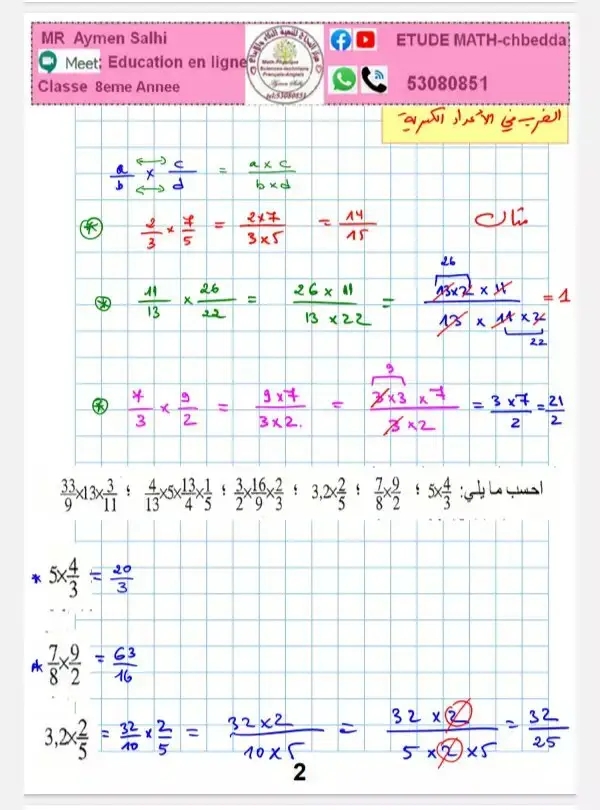 MR Aymen Salhi
Meet: Education en ligne
Classe 8eme Annee
ETUDE MATH-chbedda
53080851
الضرب في الأعداد الكسرية
a/b × c/d = a×c / b×d
مثال
2/3 × 7/5 = 2×7 / 3×5 = 14/15
11/13 × 26/22 = 26×11 / 13×22 = 13×2×11 / 13×11×2 = 1
26
22
7/3 × 9/2 = 9×7 / 3×2 = 3×3×7 / 3×2 = 3×7 / 2 = 21/2
9
احسب ما يلي: 5×4/3 ؛ 7/8×9/2 ؛ 3,2×2/5 ؛ 3/2×16/9×2/3 ؛ 4/13×5×13/4×1/5 ؛ 33/9×13×3/11
* 5×4/3 = 20/3
* 7/8×9/2 = 63/16
3,2×2/5 = 32/10 × 2/5 = 32×2 / 10×5 = 32×2 / 5×2×5 = 32/25
2